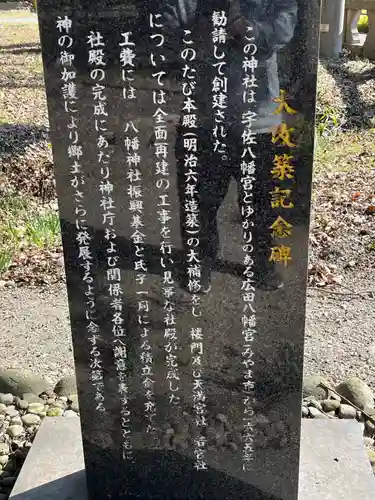 大改築記念碑
この神社は、宇佐八幡宮とゆかりのある広田八幡宮(みやま市)から一六六五年に
勧請して創建された。
このたび本殿(明治六年造築)の大補修をし 楼門及び天満宮社 若宮社
については全面再建の工事を行い見事な社殿が完成した
工費には 八幡神社振興基金と氏子一同による積立金を充てた
社殿の完成にあたり神社庁および関係者各位へ謝意を表するとともに
神の御加護により郷土がさらに発展するように念ずる次第である